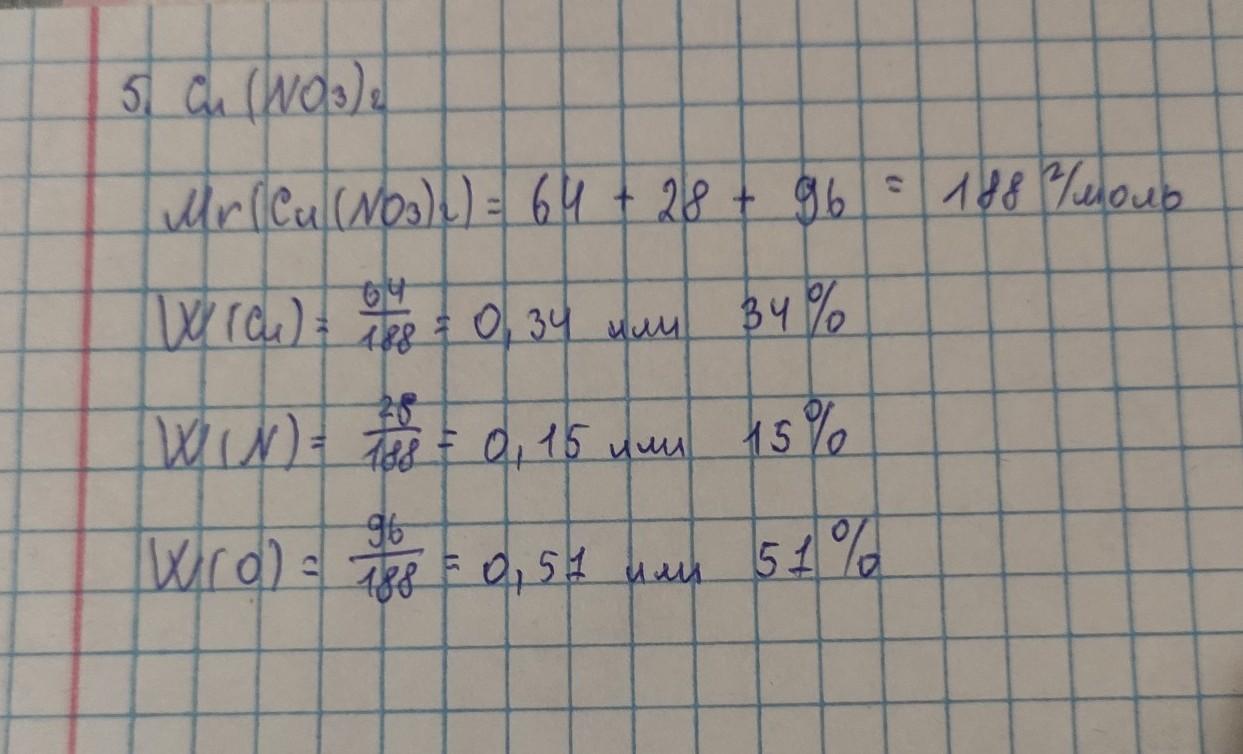 5. Cu(NO3)2
Mr(Cu(NO3)2) = 64 + 28 + 96 = 188 г/моль
W(Cu) = 64/188 = 0,34 или 34%
W(N) = 28/188 = 0,15 или 15%
W(O) = 96/188 = 0,51 или 51%